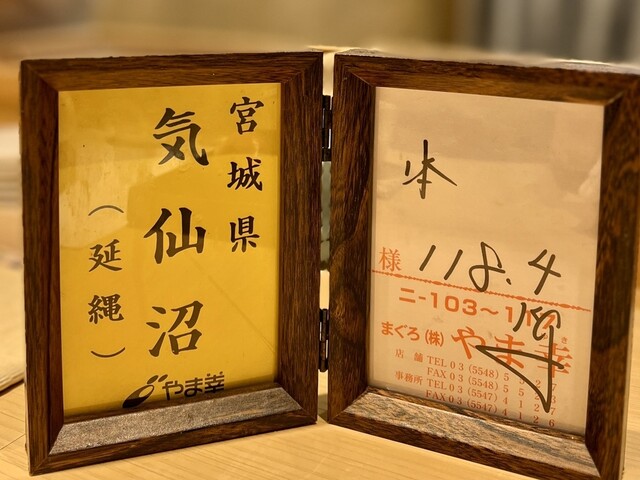 宮城県
気仙沼
（延縄）
やま幸
本
様 118.4
ニ-103～
まぐろ(株) やま幸
店舗 TEL 03 (5548)
FAX 03 (5548)
事務所 TEL 03 (5547)
FAX 03 (5547)